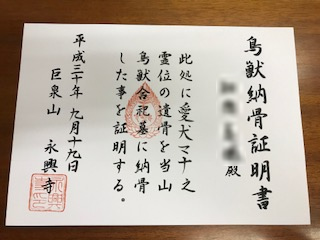 鳥獣納骨証明書
殿
此処に愛犬マナ之
霊位の遺骨を当山
鳥獣合祀墓に納骨
した事を証明する。
平成三十年 九月十九日
巨泉山 永興寺